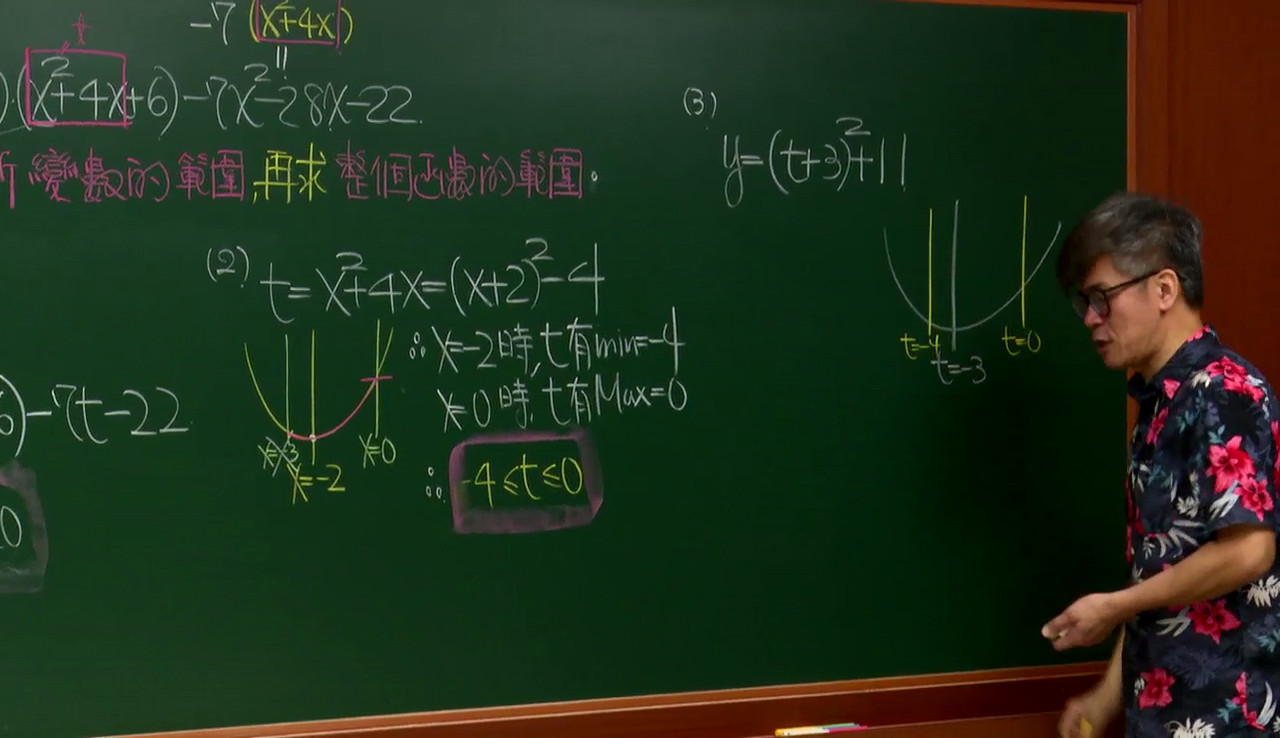 -7(x²+4x)
t
)(x²+4x+6)-7x²-28x-22
變數的範圍,再求整個函數的範圍.
(2) t=x²+4x=(x+2)²-4
∴x=-2時,t有min=-4
x=0時,t有Max=0
∴ -4≤t≤0
x=-3
x=-2
x=0
6)-7t-22
0
(3)
y=(t+3)²+11
t=-4
t=-3
t=0